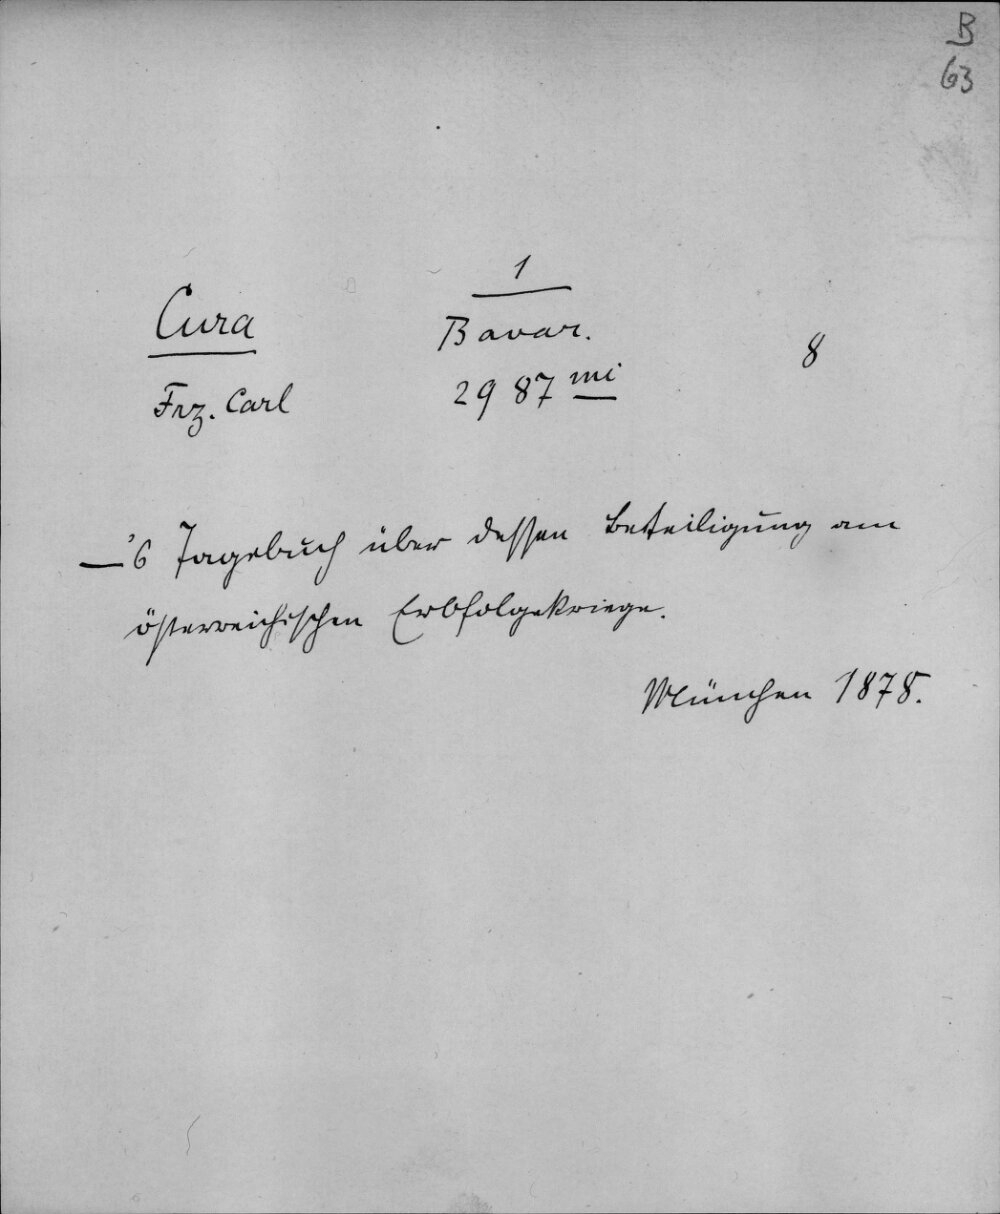 B
63
1
Cura Bavar. 8
Frz. Carl 2987 mi
—'s Tagebuch über dessen Beteiligung am
österreichischen Erbfolgekriege.
München 1878.